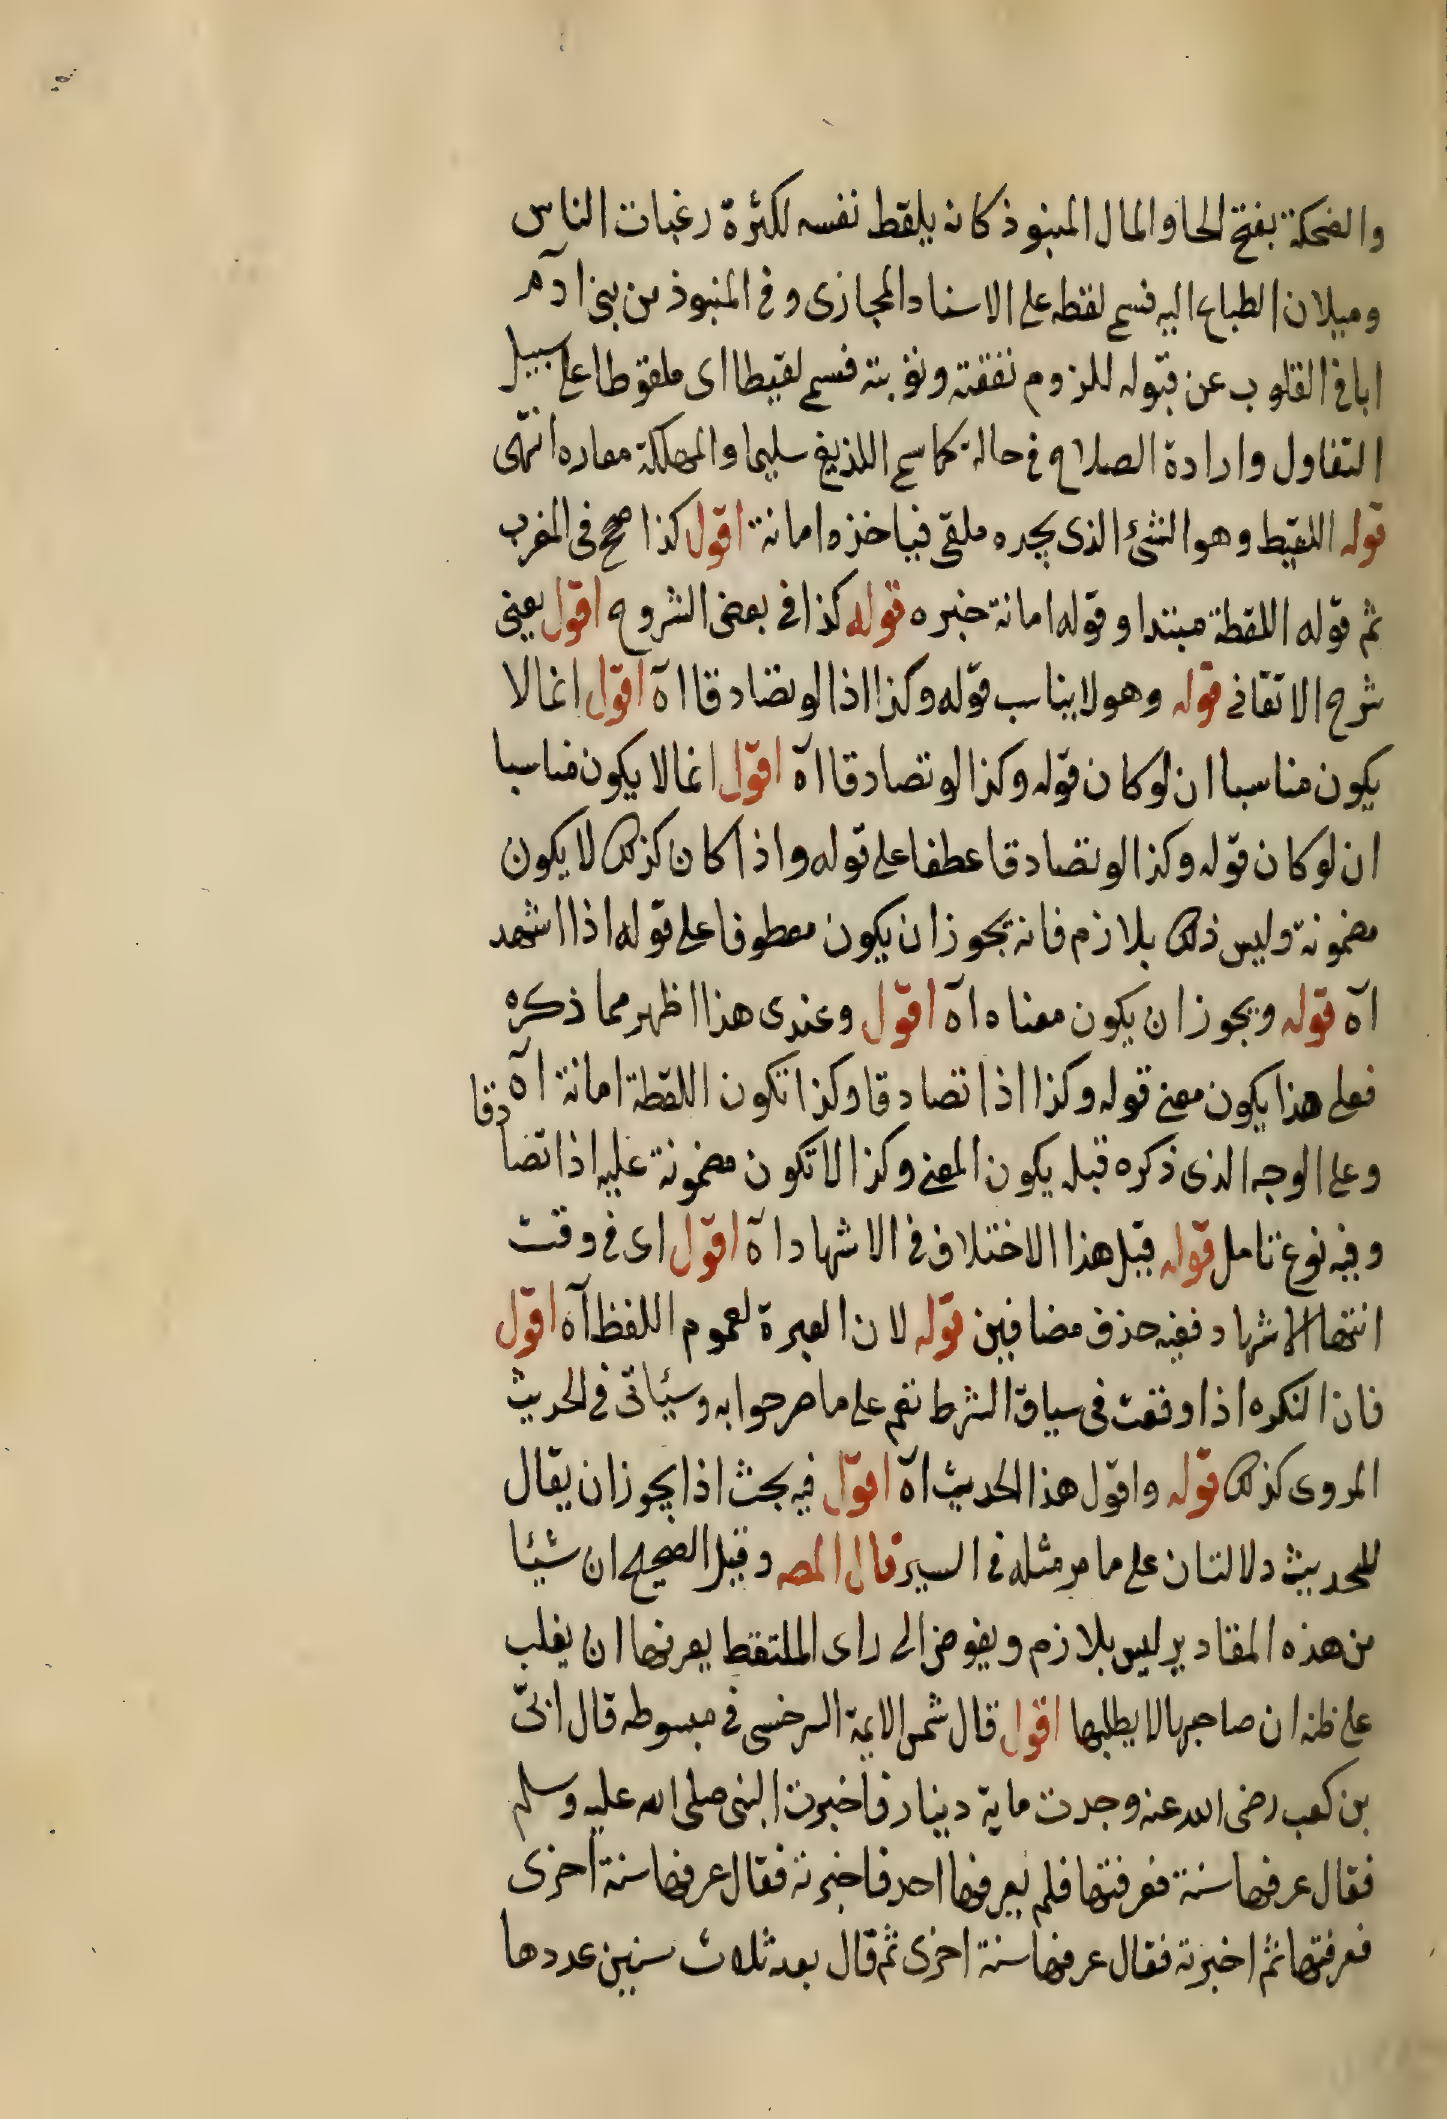 والضحكة بفتح الحا والمال المنبوذ كانه يلقط نفسه لكثرة رغبات الناس
وميلان الطباع اليه فسمى لقطه على الاسناد المجازى وفى المنبوذ من بنى آدم
ابا فى القلوب عن قبوله للزوم نفقته ونوبته فسمى لقيطا اى ملقوطا على سبيل
التفاول وارادة الصلاح فى حاله كما سمى اللذيغ سليما والمهلكة مفازه انتهى
قوله اللقيط وهو الشئ الذى يجده ملقى فياخذه امانة اقول كذا صحح فى المغرب
ثم قوله اللقطة مبتدا وقوله امانة خبره قوله كذا فى بعض الشروح اقول يعنى
شرح الاتقانى قوله وهو لا يناسب قوله وكذا اذا لو تصادقا اآه اقول انما لا
يكون مناسبا ان لو كان قوله وكذا لو تصادقا اآه اقول انما لا يكون مناسبا
ان لو كان قوله وكذا لو تصادقا عطفا على قوله واذا كان كذلك لا يكون
مضمونة وليس ذلك بلازم فانه يجوز ان يكون معطوفا على قوله اذا اشهد
اآه قوله ويجوز ان يكون معناه اآه اقول وعندى هذا اظهر مما ذكره
فعلى هذا يكون معنى قوله وكذا اذا تصادقا وكذا تكون اللقطة امانة اآه
وعلى الوجه الذى ذكره قبله يكون المعنى وكذا لا تكون مضمونة عليه اذا تصادقا
وفيه نوع تامل قوله قيل هذا الاختلاف فى الاشهاد اآه اقول اى فى وقت
انتها الاشهاد ففيه حذف مضافين قوله لان العبرة لعموم اللفظ اآه اقول
فان النكره اذا وقعت فى سياق الشرط تعم على ما مر جوابه وسيئاتى فى الحديث
المروى كذلك قوله واقول هذا الحديث اآه اقول فيه بحث اذا يجوز ان يقال
للحديث دلالتان على ما مر مثله فى السير قال المص وقيل الصحيح ان شيئا
من هذه المقادير ليس بلازم ويفوض الى راى الملتقط يعرفها ان يغلب
على ظنه ان صاحبها لا يطلبها اقول قال شمس الايمة السرخسى فى مبسوطه قال ابىّ
بن كعب رضى الله عنه وجدت ماية دينار فاخبرت النبى صلى الله عليه وسلم
فقال عرفها سنة فعرفتها فلم يعرفها احد فاخبرته فقال عرفها سنة اخرى
فعرفتها ثم اخبرته فقال عرفها سنة اخرى ثم قال بعد ثلاث سنين عددها